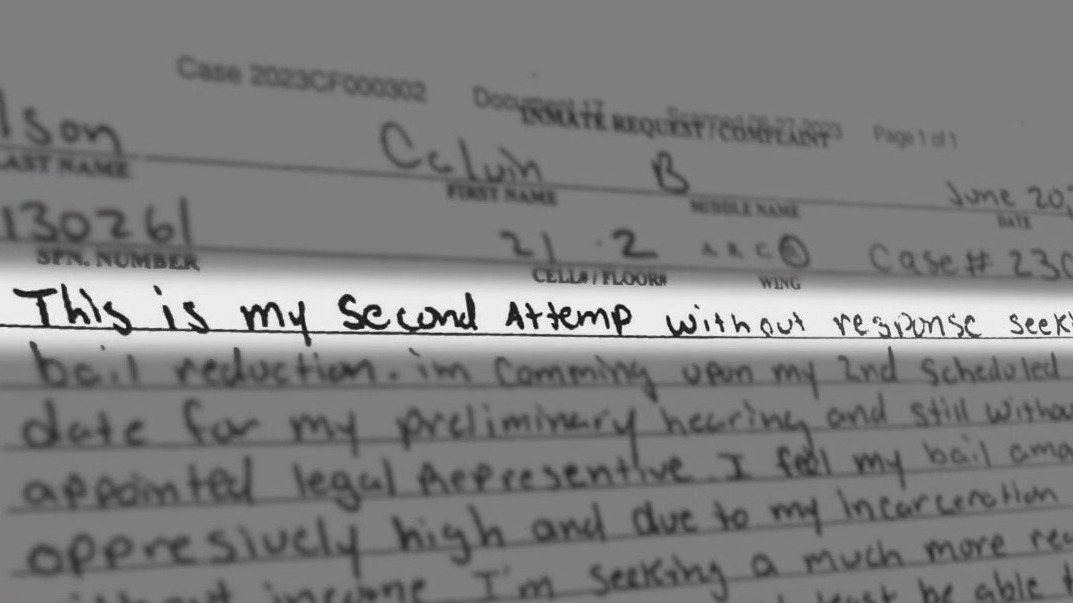 Case 2023CF000302 Document 17 Scanned 06-27-2023 Page 1 of 1
INMATE REQUEST/COMPLAINT
lson Calvin B June 20,
LAST NAME FIRST NAME MIDDLE NAME DATE
130261 21 · 2 A B C D Case# 230
SPN. NUMBER CELL# / FLOOR# WING
This is my Second Attemp without response seek
bail reduction. im Comming upon my 2nd Scheduled
date for my preliminary hearing and still withou
appointed legal Representive. I feel my bail amo
oppresively high and due to my Incarceration
without income I'm Seeking a much more rea
least be able t